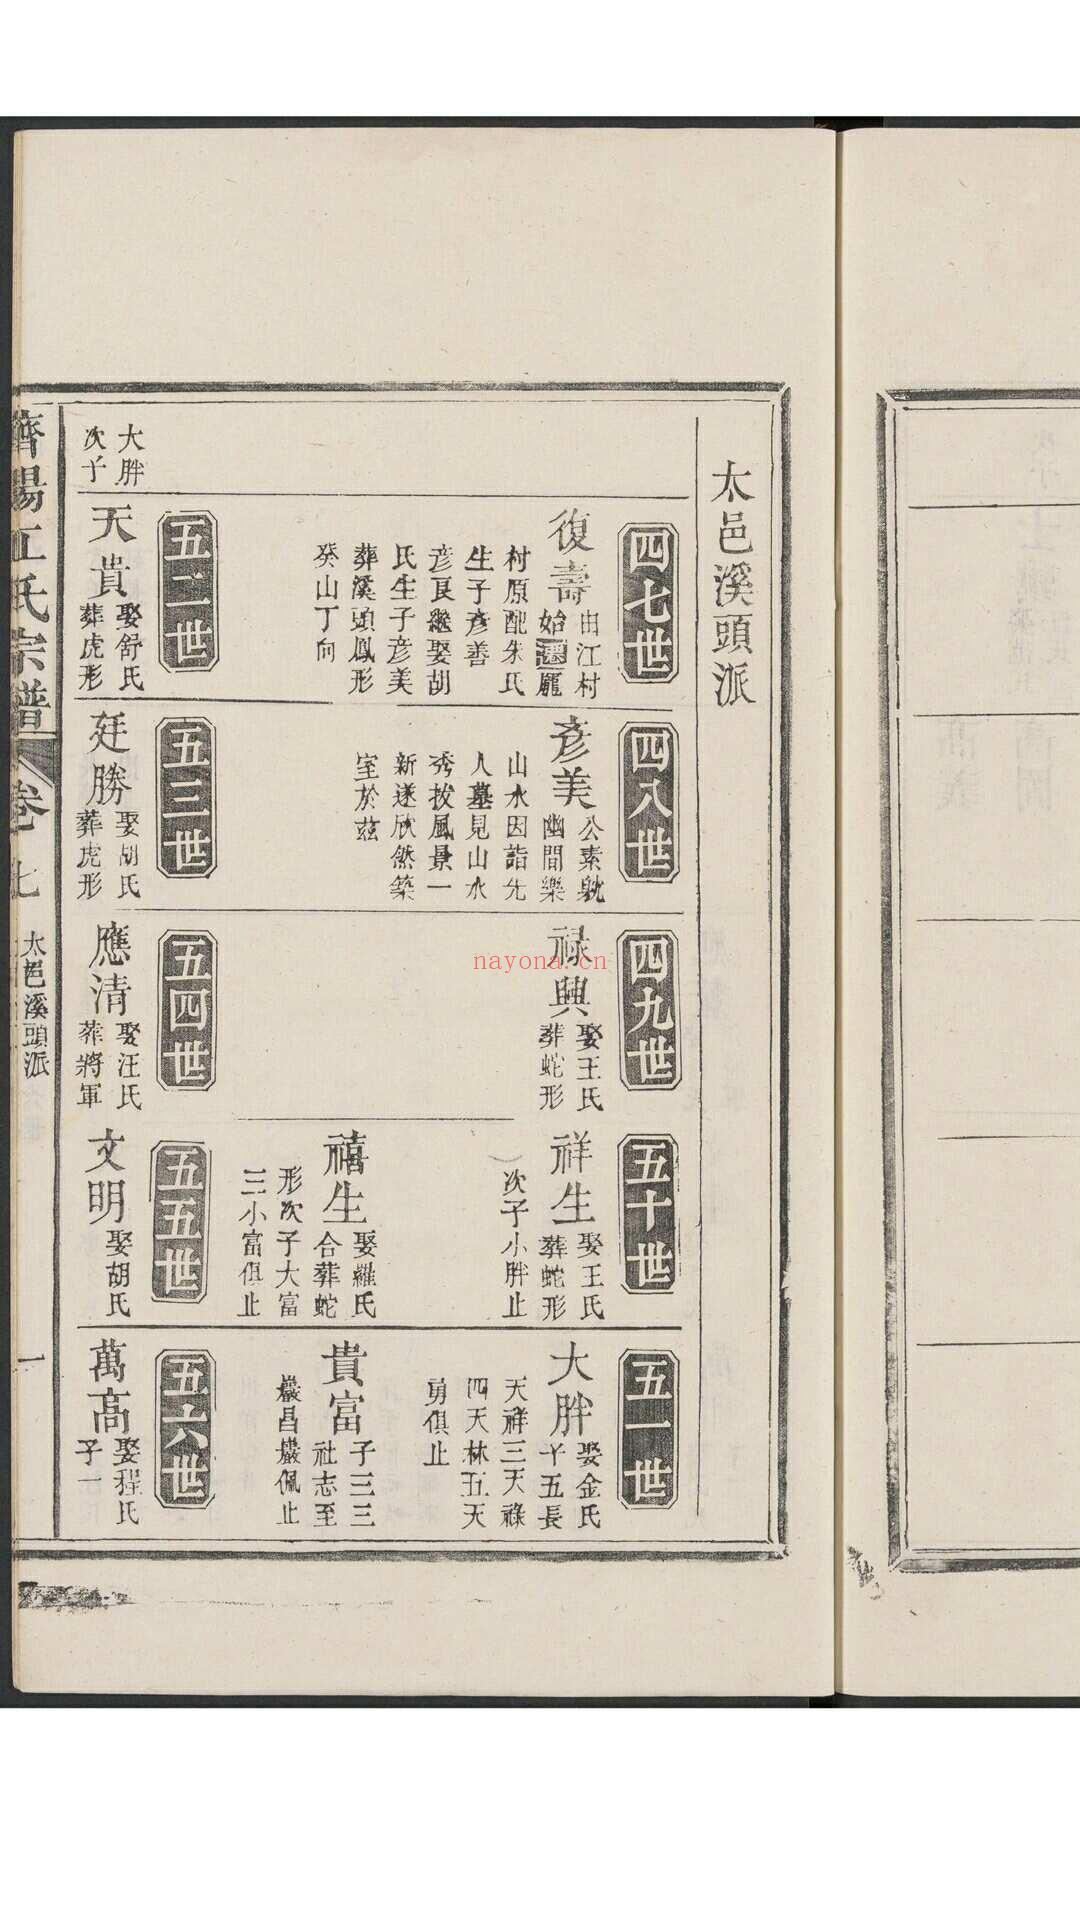 太邑溪頭派
四七世
復壽
由江村
始遷龐
村原配朱氏
生子彥善
彥良繼娶胡
氏生子彥美
葬溪頭鳳形
癸山丁向
四八世
彥美
公素躭
幽間樂
山水因詣先
人墓見山水
秀拔風景一
新遂欣然築
室於茲
四九世
祿興
娶王氏
葬蛇形
五十世
祥生
娶王氏
葬蛇形
次子小胖止
禧生
娶羅氏
合葬蛇
形次子大富
三小富俱止
五一世
大胖
娶金氏
子五長
天祥三天祿
四天林五天
勇俱止
貴富
子三三
社志至
巖昌巖佩止
大胖
次子
五二世
天貴
娶舒氏
葬虎形
五三世
廷勝
娶胡氏
葬虎形
五四世
應清
娶汪氏
葬將軍
五五世
文明
娶胡氏
五六世
萬高
娶程氏
子一
濟陽江氏宗譜
卷七
太邑溪頭派
一
nayona.cn